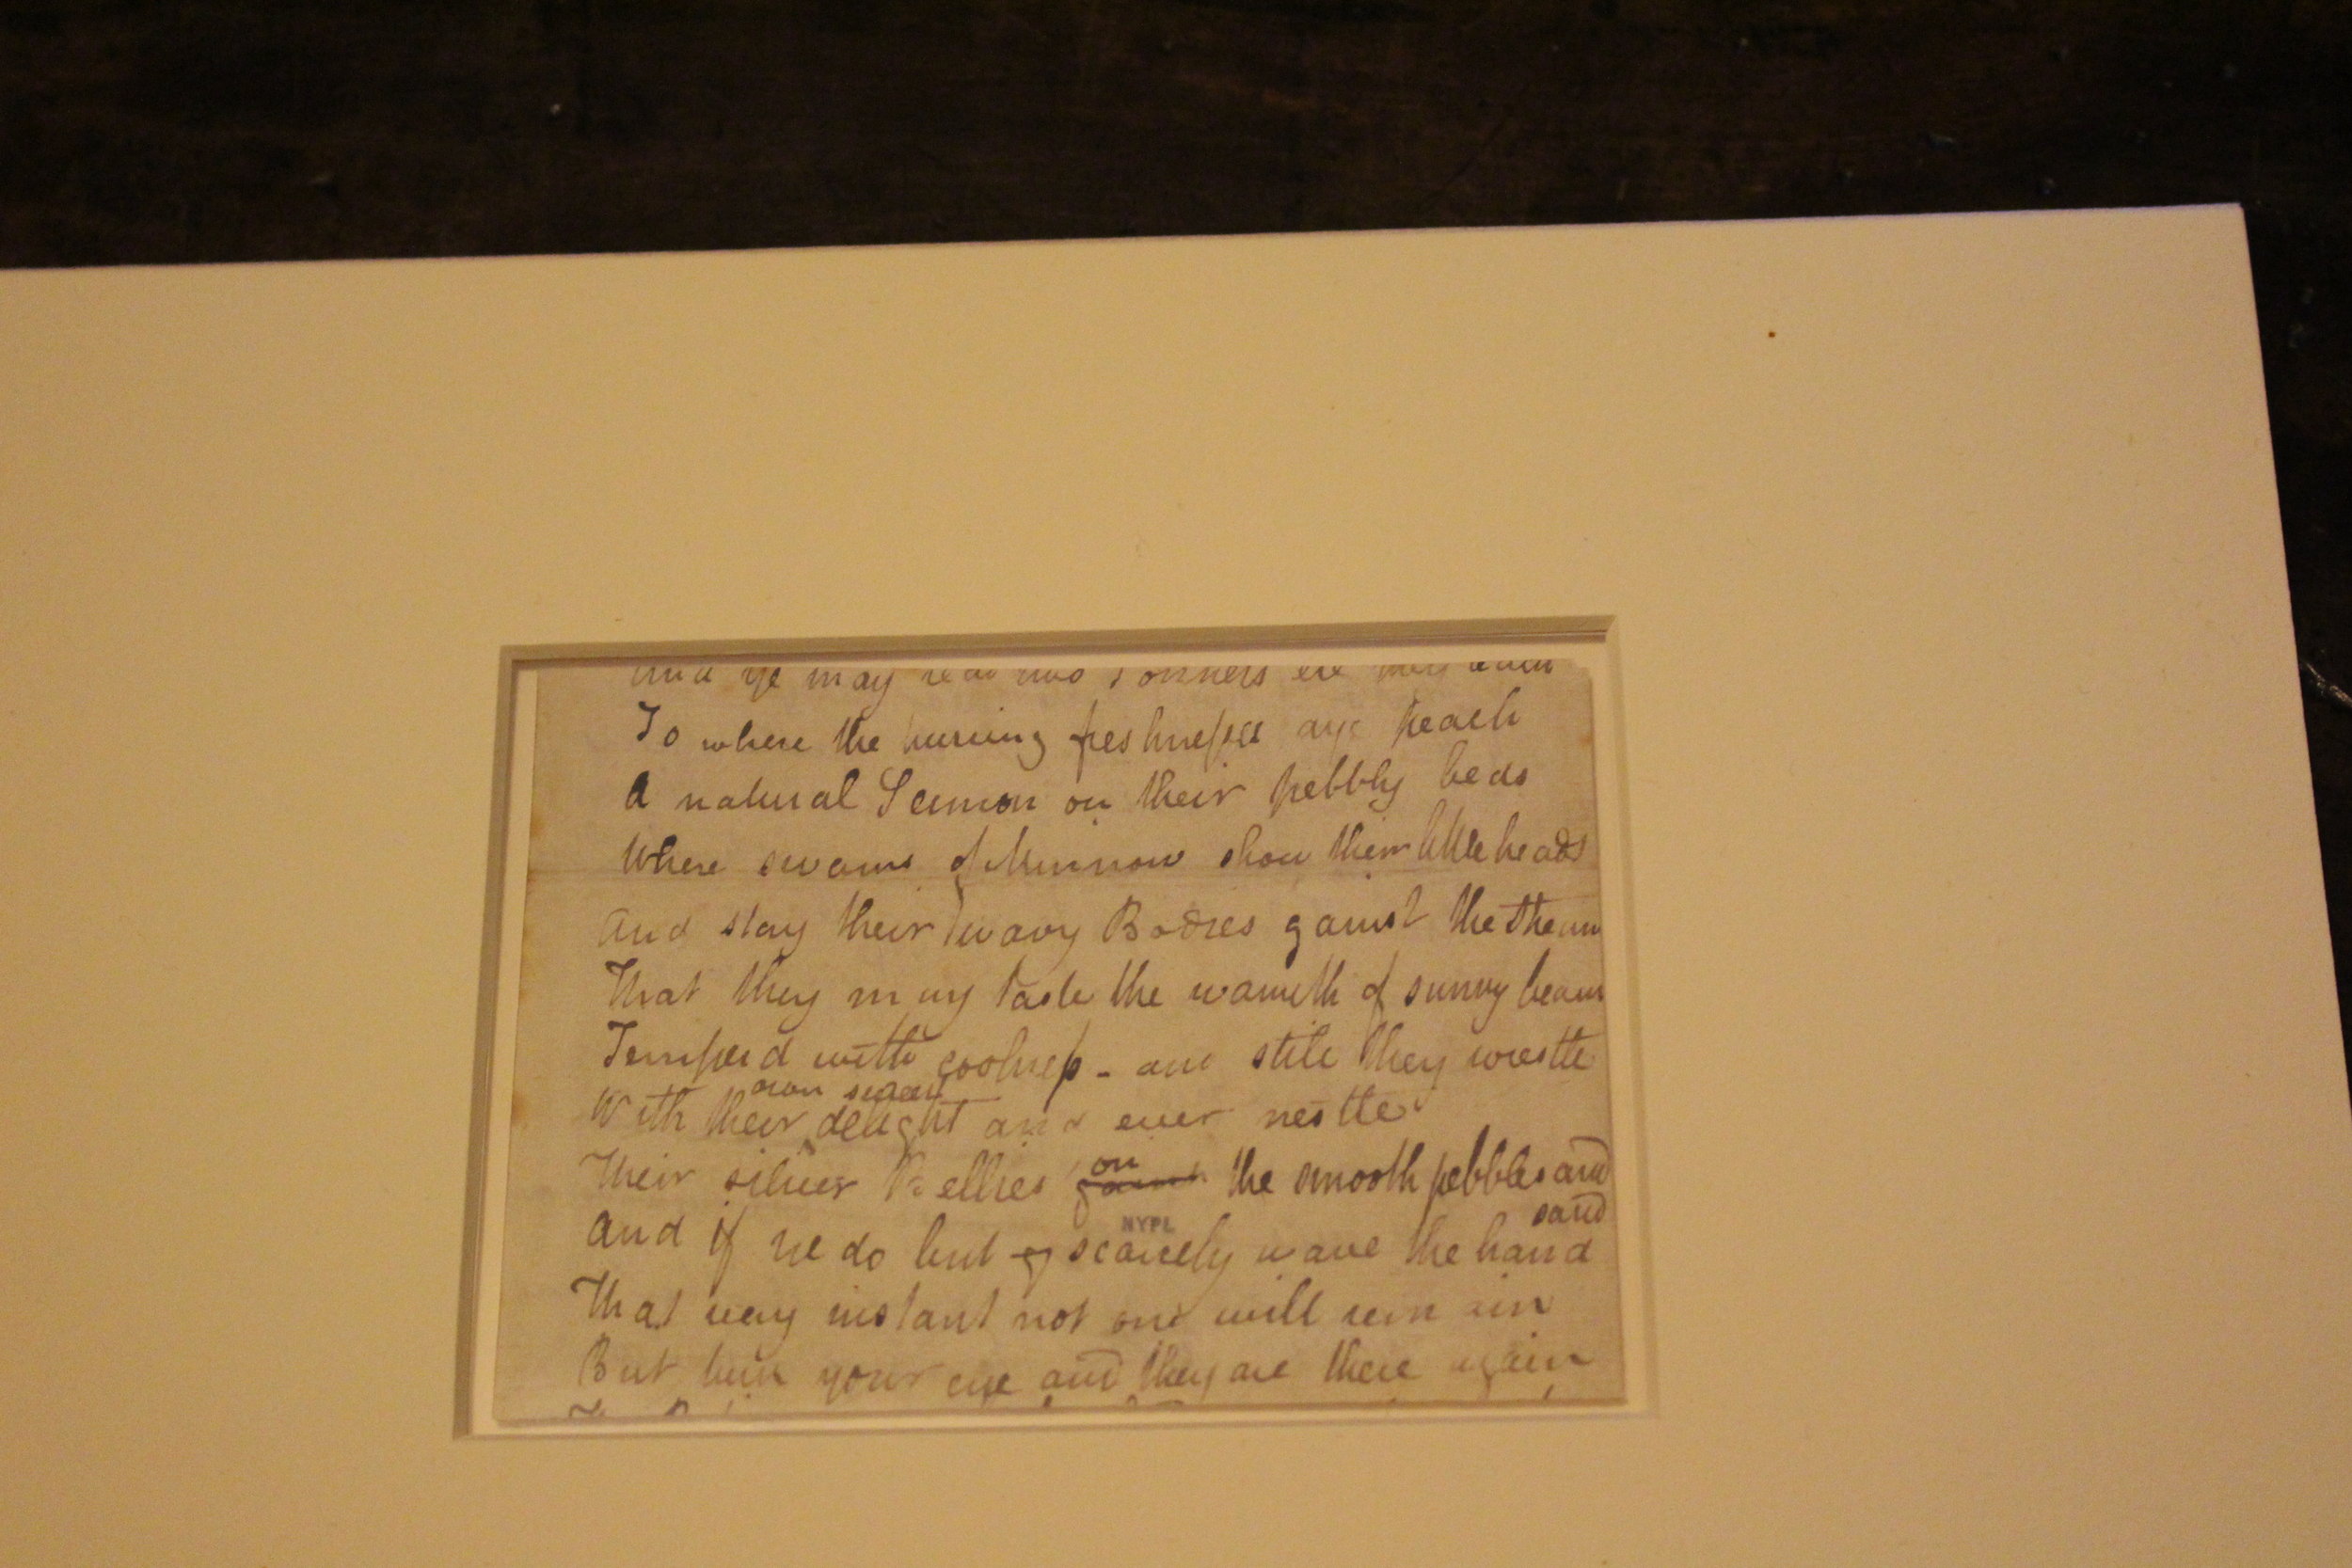 and ye may read two sonnets ere they reach
To where the hurrying freshnesses aye preach
A natural Sermon on their pebbly beds
Where swarms of Minnows show their little heads
And stay their wavy Bodies gainst the Stream
That they may taste the warmth of sunny beam
Temperd with coolness - and still they wrestle
own sweet
With their delight and ever nestle
on
Their silver Bellies gainst the smooth pebbles and
sand
NYPL
And if ye do but scarcely wave the hand
That very instant not one will remain
But turn your eye and they are there again